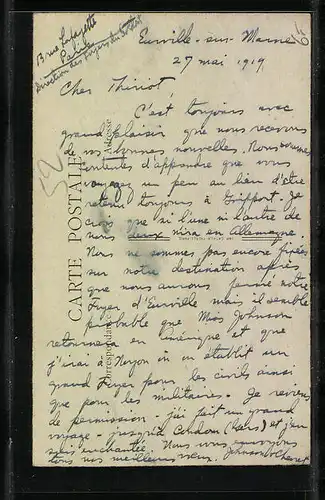 13 rue Lafayette
Paris
Direction des Foyers du Soldat
Eurville-sur-Marne
27 mai 1919
Cher Thiriot,
C'est toujours avec
grand plaisir que nous recevons
de vos bonnes nouvelles. Nous sommes
contentes d'apprendre que vous
voyagez un peu au lieu d'être
retenu toujours à Je
crois que ni l'une ni l'autre de
nous deux n'ira en Allemagne.
Nous ne sommes pas encore fixées
sur notre destination après
que nous aurons fermé notre
Foyer d'Eurville mais il semble
probable que Miss Johnson
retournera en Amérique et que
j'irai à Noyon où on établit un
grand Foyer pour les civils ainsi
que pour les militaires. Je reviens
de permission - j'ai fait un grand
voyage - jusqu'à Condom (Gers) et j'en
suis enchantée. Nous vous envoyons
tous nos meilleurs vœux. Johnson
CARTE POSTALE
Correspondance
Adresse